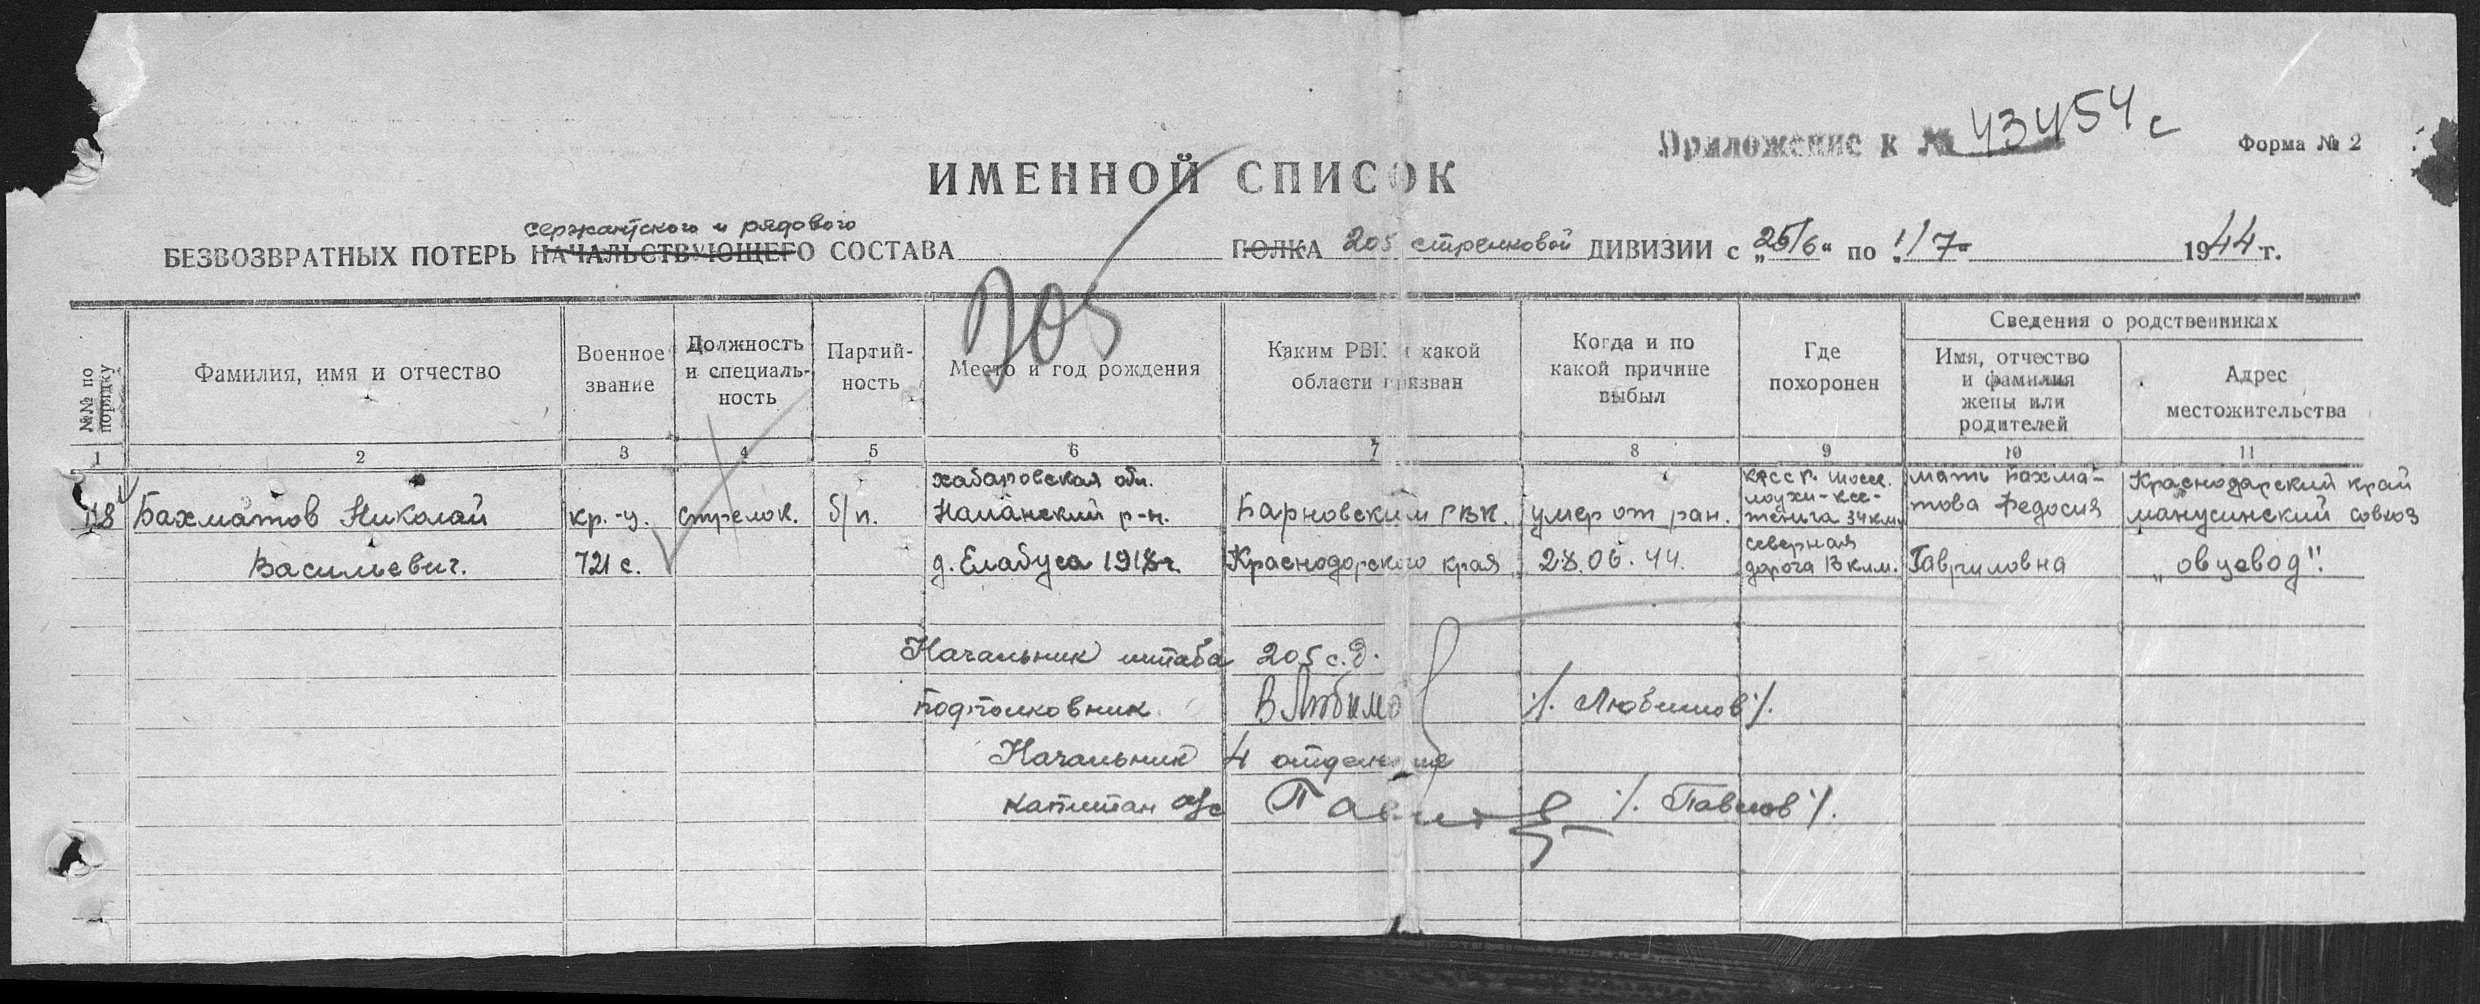 Приложение к № 43454с
Форма № 2
ИМЕННОЙ СПИСОК
сержантского и рядового
БЕЗВОЗВРАТНЫХ ПОТЕРЬ НАЧАЛЬСТВУЮЩЕГО СОСТАВА ПОЛКА 205 стрелковой ДИВИЗИИ с „25/6“ по „1/7“ 1944 г.
205
№№ по порядку
Фамилия, имя и отчество
Военное звание
Должность и специальность
Партийность
Место и год рождения
Каким РВК и какой области призван
Когда и по какой причине выбыл
Где похоронен
Сведения о родственниках
Имя, отчество и фамилия жены или родителей
Адрес местожительства
1 2 3 4 5 6 7 8 9 10 11
118 Бахматов Николай Васильевич.
кр.-ц. 721 с.
стрелок.
б/п.
хабаровская обл.
Нанайский р-н.
д. Елабуга 1918г.
Барновским РВК.
Краснодарского края
умер от ран.
28.06.44.
КФССР. шоссе.
лоухи-кес-
теньга 34км.
северная
дорога 13 клм.
мать Бахма-
това Федосия
Гавриловна
Краснодарский край
манусинский совхоз
„овцевод".
Начальник штаба 205 с.д.
подполковник В Любимо /. Любимов /.
Начальник 4 отделения
капитан а/с Павлов /. Павлов /.